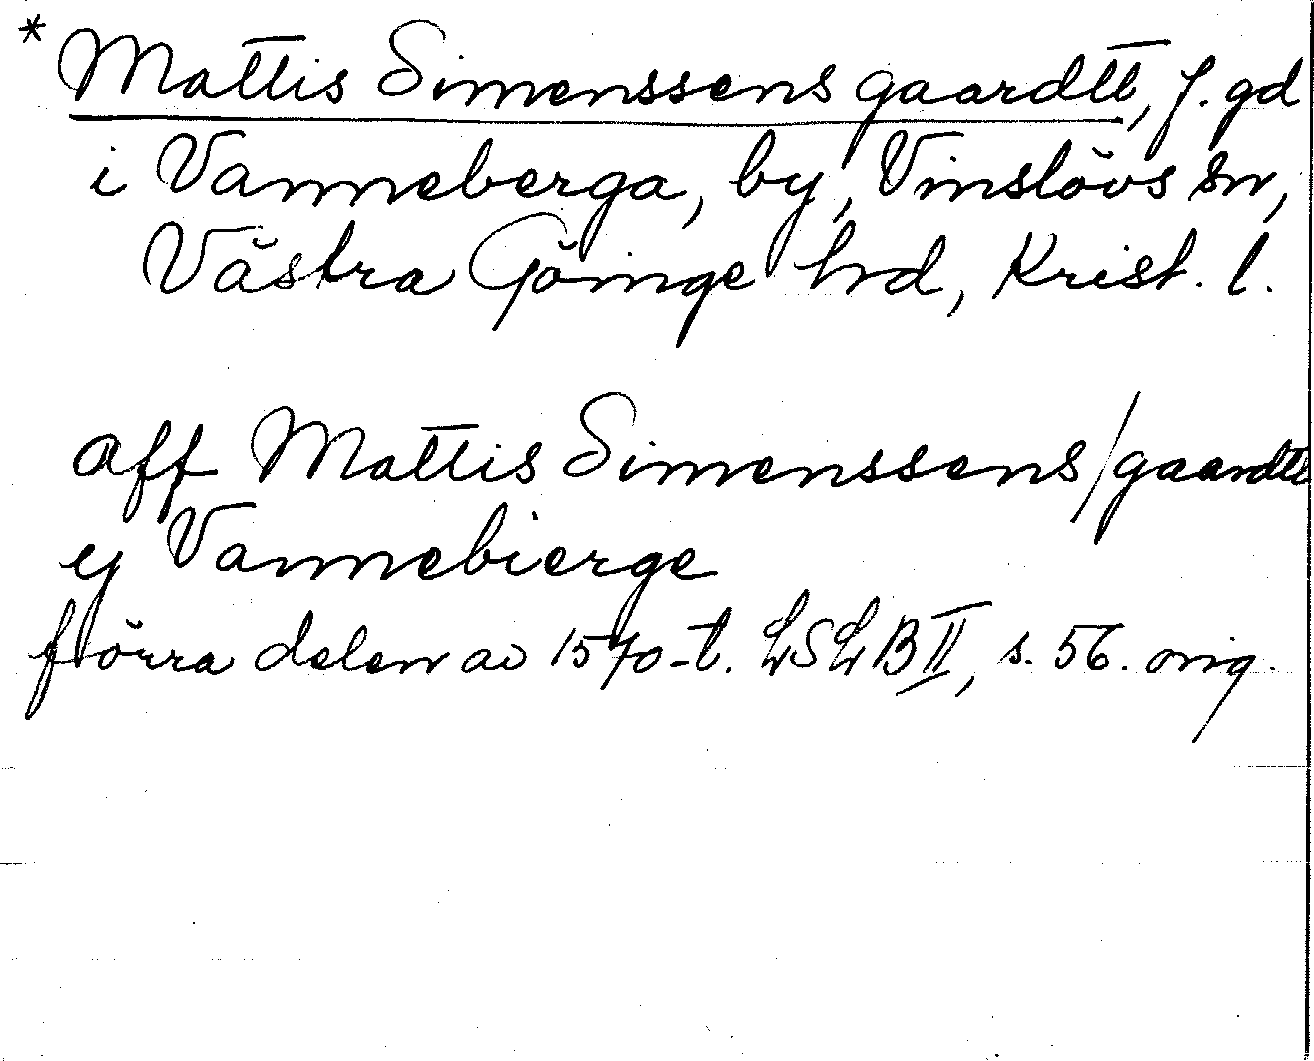 * Mattis Simenssens gaardtt, f. gd
i Vanneberga, by, Vinslövs sn,
Västra Göinge hrd, Krist. l.
aff Mattis Simenssens/gaardtt
ej Vannebierge
förra delen av 1570-t. LSLB II, s. 56. orig.